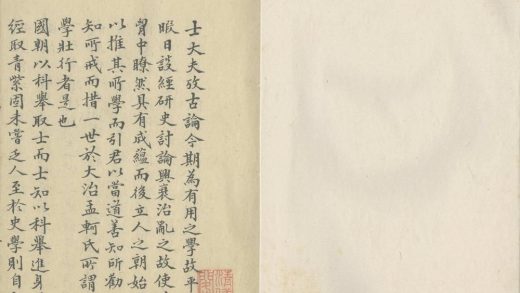 士大夫攷古論今期為有用之學故平
暇日談經研史討論興衰治亂之故使
胷中瞭然具有成蘊而後立人之朝始
以推其所學而引君以當道善知所勸
知所戒而措一世於大治孟軻氏所謂
學壯行者是也
國朝以科舉取士而士知以科舉進身
經取青紫固未嘗乏人至於史學則自